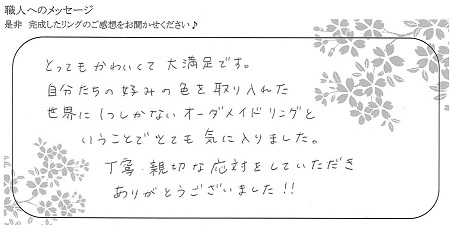 職人へのメッセージ
是非 完成したリングのご感想をお聞かせください♪
とってもかわいくて 大満足です。
自分たちの好みの色を取り入れた
世界に1つしかないオーダーメイドリングと
いうことでとても気に入りました。
丁寧 親切な応対をしていただき
ありがとうございました!!